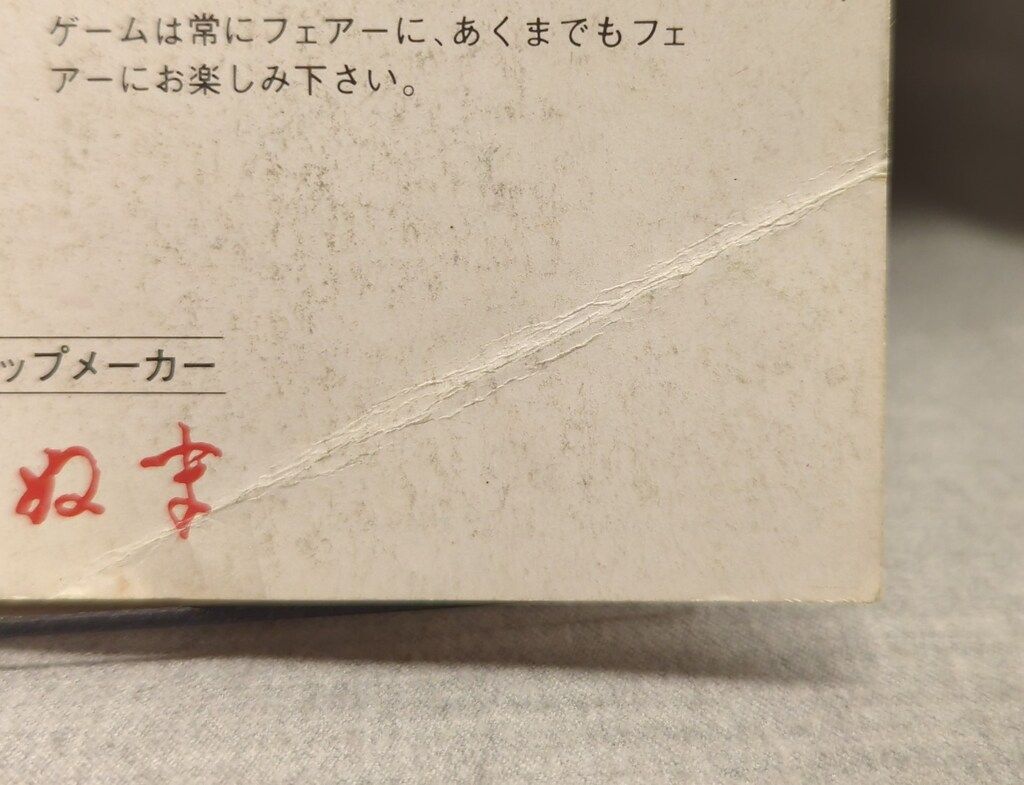 ゲームは常にフェアーに、あくまでもフェ
アーにお楽しみ下さい。
ップメーカー
ぬま